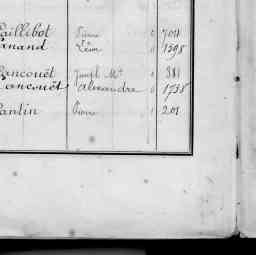 aillibot Pierre 704
anand Léon 1598
ancouët Joseph Mie 381
ancouët Alexandre 1738
anlin Pierre 201